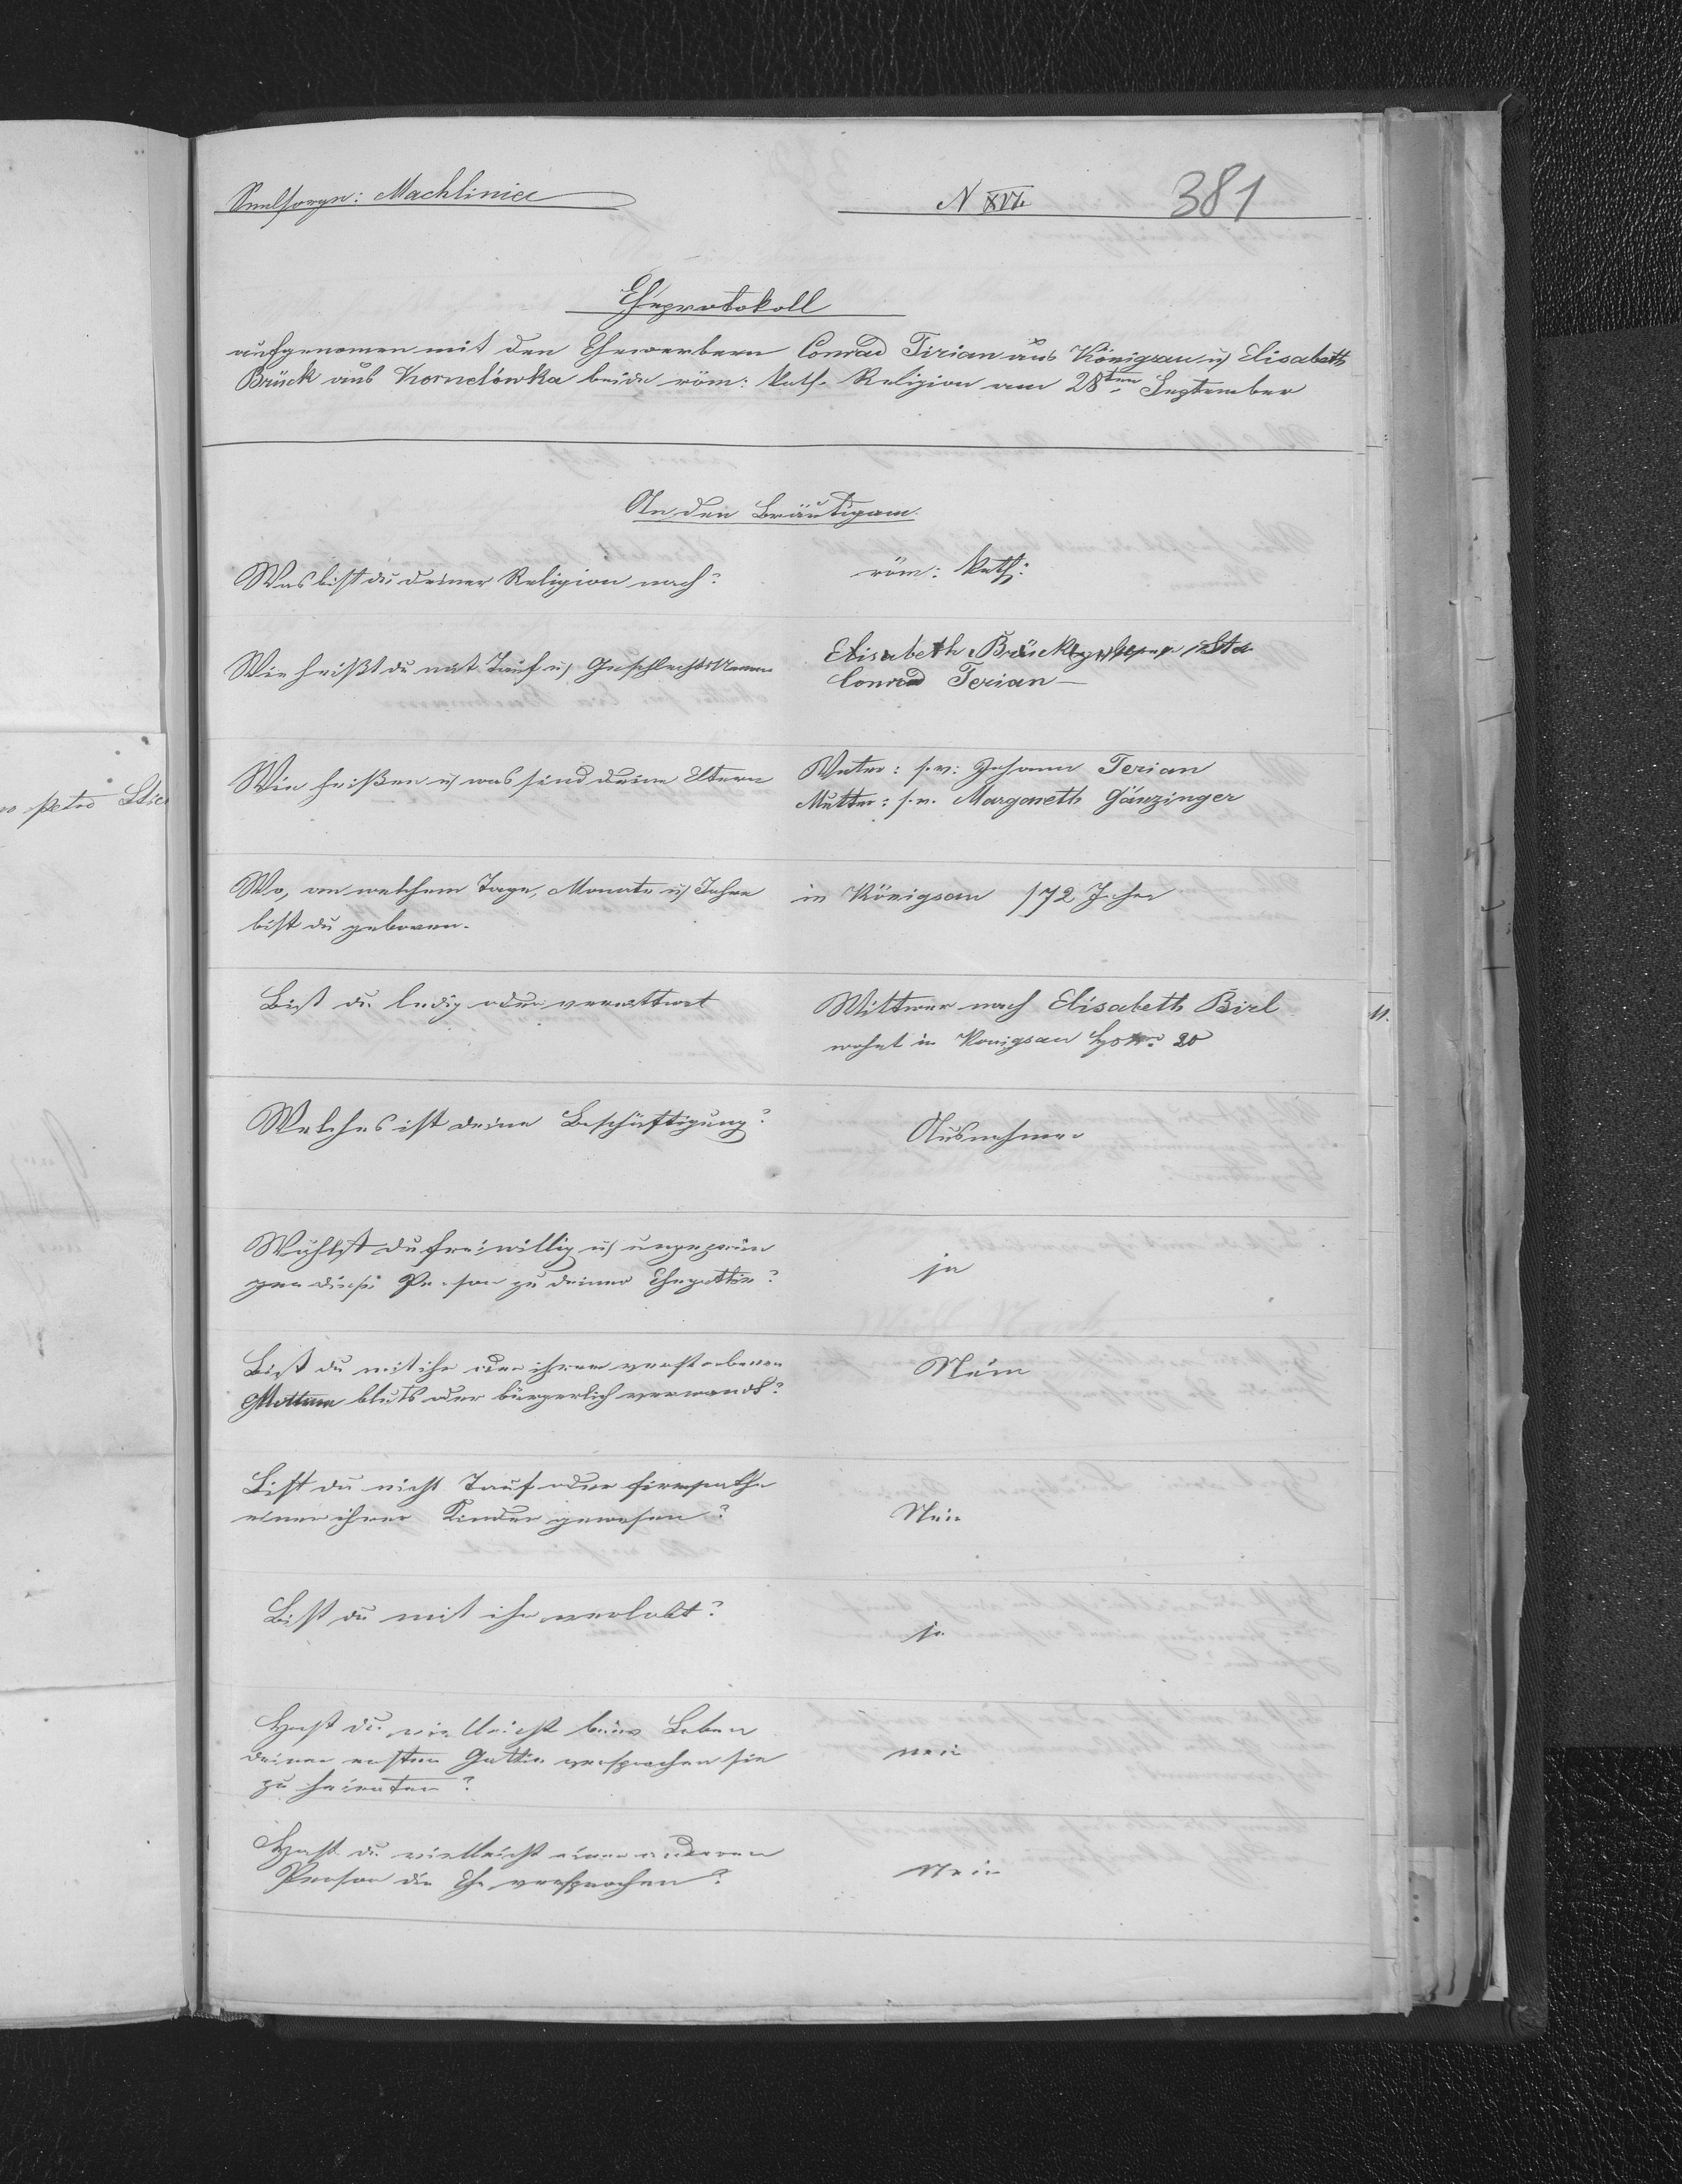 Seelsorge: Machliniec
N XVI
381
Eheprotokoll
aufgenomen mit den Ehewerbern Conrad Tirian aus Königsau u Elisabeth
Brück aus Kornelówka beide röm: kath. Religion am 28ten September
An den Bräutigam.
Was bist du deiner Religion nach?
röm: kath:
Wie heißt du mit Tauf u Geschlechts Namen
Elisabeth Brück
Conrad Terian
Wie heißen u was sind deine Eltern
Vater: Johann Terian
Mutter: Margareth Gänzinger
Wo, an welchem Tage, Monate u Jahre
bist du geboren.
in Königsau 172 Jahr
Bist du ledig oder verwittwet
Wittwer nach Elisabeth Birl
wohnt in Konigsau 20
Welches ist deine Beschäftigung?
Ausnehmer
Wählst du freiwillig u ungezwun
gen diese Person zu deiner Ehegattin?
ja
Bist du mit ihr oder ihrem verstorbenen
bluts oder bürgerlich verwandt?
Nein
Bist du nicht Tauf oder Firmpathe
einer ihrer Kinder gewesen?
Nein
Bist du mit ihr verlobt?
ja
Hast du vielleicht beim Leben
deiner ersten Gattin versprochen sie
zu heiraten?
nein
Hast du vielleicht einer anderen
Person die Ehe versprochen?
Nein